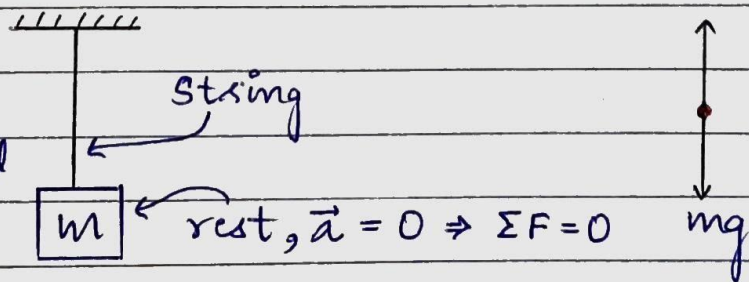 String
m
rest, a⃗ = 0 ⇒ ΣF = 0
mg